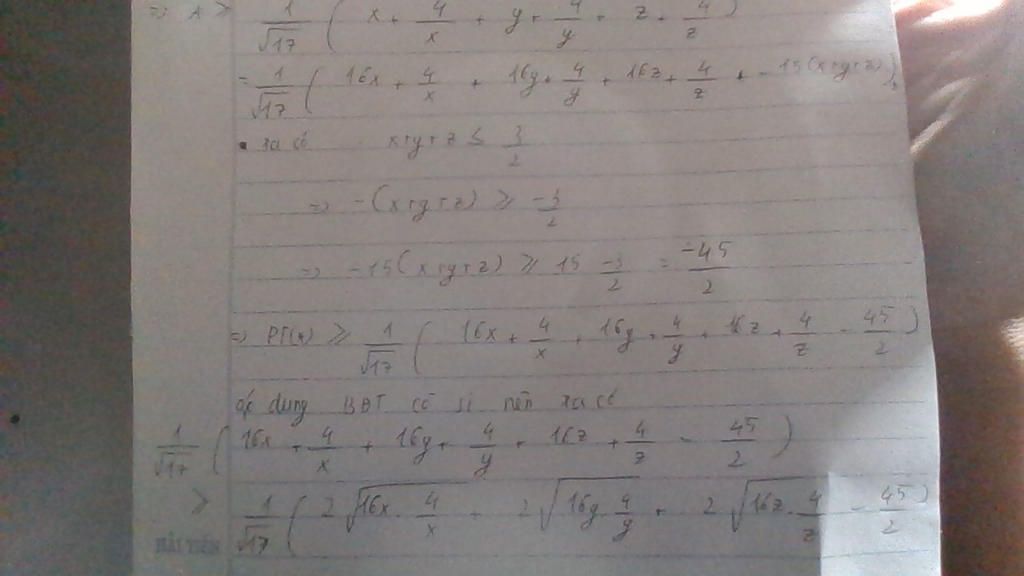 => A ≥ 1/√17 ( x + 4/x + y + 4/y + z + 4/z )
= 1/√17 ( 16x + 4/x + 16y + 4/y + 16z + 4/z + -15(x+y+z) )
• ta có x+y+z ≤ 3/2
=> -(x+y+z) ≥ -3/2
=> -15(x+y+z) ≥ 15 -3/2 = -45/2
=> ≥ 1/√17 ( 16x + 4/x + 16y + 4/y + 16z + 4/z - 45/2 )
dụng BĐT cô si nên ta có
1/√17 ( 16x + 4/x + 16y + 4/y + 16z + 4/z - 45/2 )
≥ 1/√17 ( 2√(16x . 4/x) + 2√(16y . 4/y) + 2√(16z . 4/z) - 45/2 )
HẢI TIẾN